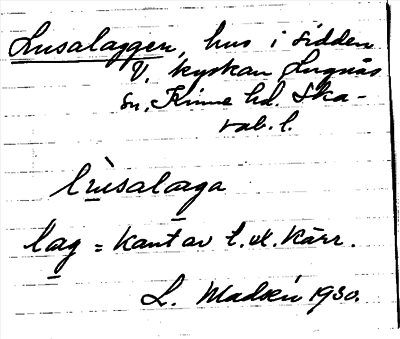 Lusalaggen, hus i sidden
V. kyrkan Lugnås
sn, Kinne hd. Ska-
rab. l.
lusalaga
lag = kant av t. ex. kärr.
L. Madsén 1930.